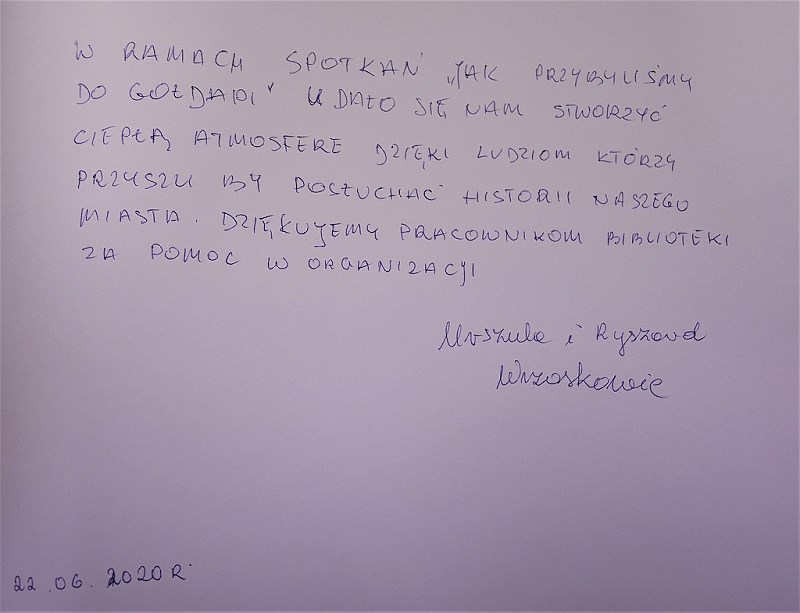 W RAMACH SPOTKAŃ „JAK PRZYBYLIŚMY
DO GOŁDAPI" UDAŁO SIĘ NAM STWORZYĆ
CIEPŁĄ ATMOSFERE DZIĘKI LUDZIOM KTÓRZY
PRZYSZLI BY POSŁUCHAĆ HISTORII NASZEGO
MIASTA. DZIĘKUJEMY PRACOWNIKOM BIBLIOTEKI
ZA POMOC W ORGANIZACJI
Urszula i Ryszard
Wrzoskowie
22.06.2020 R.